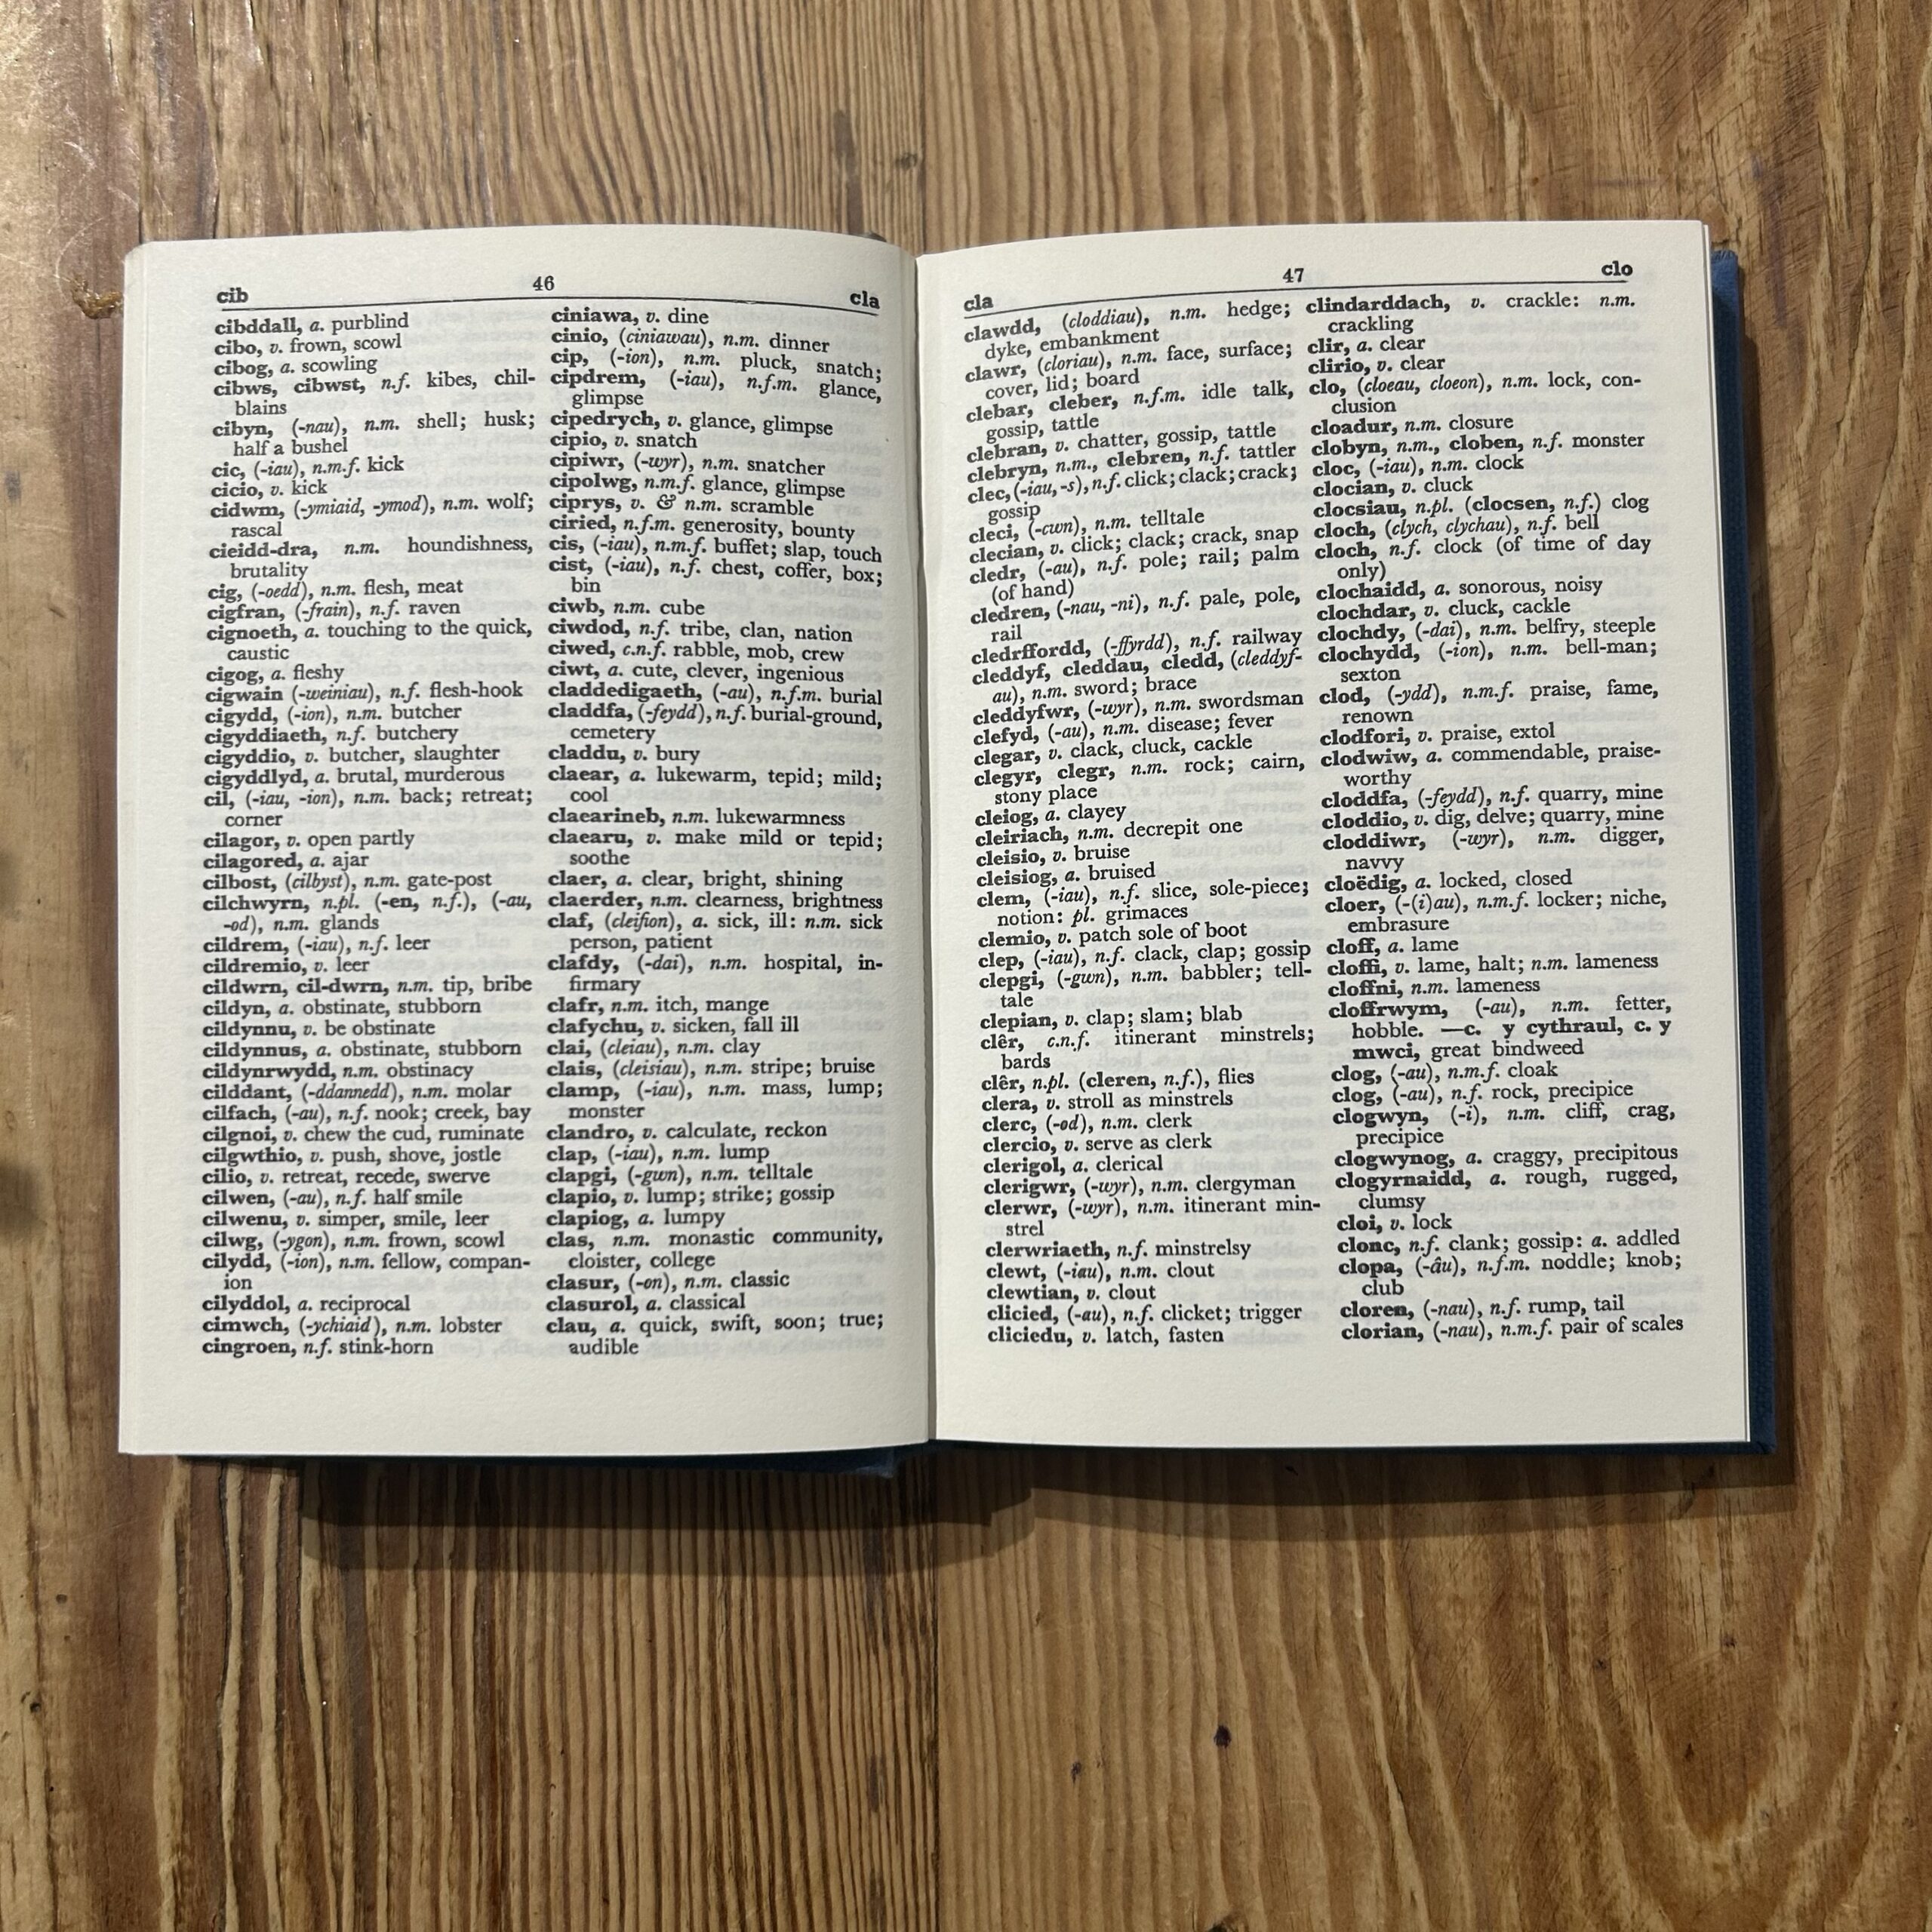 cib 46 cla
cibddall, a. purblind
cibo, v. frown, scowl
cibog, a. scowling
cibws, cibwst, n.f. kibes, chil-
blains
cibyn, (-nau), n.m. shell; husk;
half a bushel
cic, (-iau), n.m.f. kick
cicio, v. kick
cidwm, (-ymiaid, -ymod), n.m. wolf;
rascal
cieidd-dra, n.m. houndishness,
brutality
cig, (-oedd), n.m. flesh, meat
cigfran, (-frain), n.f. raven
cignoeth, a. touching to the quick,
caustic
cigog, a. fleshy
cigwain (-weiniau), n.f. flesh-hook
cigydd, (-ion), n.m. butcher
cigyddiaeth, n.f. butchery
cigyddio, v. butcher, slaughter
cigyddlyd, a. brutal, murderous
cil, (-iau, -ion), n.m. back; retreat;
corner
cilagor, v. open partly
cilagored, a. ajar
cilbost, (cilbyst), n.m. gate-post
cilchwyrn, n.pl. (-en, n.f.), (-au,
-od), n.m. glands
cildrem, (-iau), n.f. leer
cildremio, v. leer
cildwrn, cil-dwrn, n.m. tip, bribe
cildyn, a. obstinate, stubborn
cildynnu, v. be obstinate
cildynnus, a. obstinate, stubborn
cildynrwydd, n.m. obstinacy
cilddant, (-ddannedd), n.m. molar
cilfach, (-au), n.f. nook; creek, bay
cilgnoi, v. chew the cud, ruminate
cilgwthio, v. push, shove, jostle
cilio, v. retreat, recede, swerve
cilwen, (-au), n.f. half smile
cilwenu, v. simper, smile, leer
cilwg, (-ygon), n.m. frown, scowl
cilydd, (-ion), n.m. fellow, compan-
ion
cilyddol, a. reciprocal
cimwch, (-ychiaid), n.m. lobster
cingroen, n.f. stink-horn
ciniawa, v. dine
cinio, (ciniawau), n.m. dinner
cip, (-ion), n.m. pluck, snatch;
cipdrem, (-iau), n.f.m. glance,
glimpse
cipedrych, v. glance, glimpse
cipio, v. snatch
cipiwr, (-wyr), n.m. snatcher
cipolwg, n.m.f. glance, glimpse
ciprys, v. & n.m. scramble
ciried, n.f.m. generosity, bounty
cis, (-iau), n.m.f. buffet; slap, touch
cist, (-iau), n.f. chest, coffer, box;
bin
ciwb, n.m. cube
ciwdod, n.f. tribe, clan, nation
ciwed, c.n.f. rabble, mob, crew
ciwt, a. cute, clever, ingenious
claddedigaeth, (-au), n.f.m. burial
claddfa, (-feydd), n.f. burial-ground,
cemetery
claddu, v. bury
claear, a. lukewarm, tepid; mild;
cool
claearineb, n.m. lukewarmness
claearu, v. make mild or tepid;
soothe
claer, a. clear, bright, shining
claerder, n.m. clearness, brightness
claf, (cleifion), a. sick, ill: n.m. sick
person, patient
clafdy, (-dai), n.m. hospital, in-
firmary
clafr, n.m. itch, mange
clafychu, v. sicken, fall ill
clai, (cleiau), n.m. clay
clais, (cleisiau), n.m. stripe; bruise
clamp, (-iau), n.m. mass, lump;
monster
clandro, v. calculate, reckon
clap, (-iau), n.m. lump
clapgi, (-gwn), n.m. telltale
clapio, v. lump; strike; gossip
clapiog, a. lumpy
clas, n.m. monastic community,
cloister, college
clasur, (-on), n.m. classic
clasurol, a. classical
clau, a. quick, swift, soon; true;
audible
cla 47 clo
clawdd, (cloddiau), n.m. hedge;
dyke, embankment
clawr, (cloriau), n.m. face, surface;
cover, lid; board
clebar, cleber, n.f.m. idle talk,
gossip, tattle
clebran, v. chatter, gossip, tattle
clebryn, n.m., clebren, n.f. tattler
clec, (-iau, -s), n.f. click; clack; crack;
gossip
cleci, (-cwn), n.m. telltale
clecian, v. click; clack; crack, snap
cledr, (-au), n.f. pole; rail; palm
(of hand)
cledren, (-nau, -ni), n.f. pale, pole,
rail
cledrffordd, (-ffyrdd), n.f. railway
cleddyf, cleddau, cledd, (cleddyf-
au), n.m. sword; brace
cleddyfwr, (-wyr), n.m. swordsman
clefyd, (-au), n.m. disease; fever
clegar, v. clack, cluck, cackle
clegyr, clegr, n.m. rock; cairn,
stony place
cleiog, a. clayey
cleiriach, n.m. decrepit one
cleisio, v. bruise
cleisiog, a. bruised
clem, (-iau), n.f. slice, sole-piece;
notion: pl. grimaces
clemio, v. patch sole of boot
clep, (-iau), n.f. clack, clap; gossip
clepgi, (-gwn), n.m. babbler; tell-
tale
clepian, v. clap; slam; blab
clêr, c.n.f. itinerant minstrels;
bards
clêr, n.pl. (cleren, n.f.), flies
clera, v. stroll as minstrels
clerc, (-od), n.m. clerk
clercio, v. serve as clerk
clerigol, a. clerical
clerigwr, (-wyr), n.m. clergyman
clerwr, (-wyr), n.m. itinerant min-
strel
clerwriaeth, n.f. minstrelsy
clewt, (-iau), n.m. clout
clewtian, v. clout
clicied, (-au), n.f. clicket; trigger
cliciedu, v. latch, fasten
clindarddach, v. crackle: n.m.
crackling
clir, a. clear
clirio, v. clear
clo, (cloeau, cloeon), n.m. lock, con-
clusion
cloadur, n.m. closure
clobyn, n.m., cloben, n.f. monster
cloc, (-iau), n.m. clock
clocian, v. cluck
clocsiau, n.pl. (clocsen, n.f.) clog
cloch, (clych, clychau), n.f. bell
cloch, n.f. clock (of time of day
only)
clochaidd, a. sonorous, noisy
clochdar, v. cluck, cackle
clochdy, (-dai), n.m. belfry, steeple
clochydd, (-ion), n.m. bell-man;
sexton
clod, (-ydd), n.m.f. praise, fame,
renown
clodfori, v. praise, extol
clodwiw, a. commendable, praise-
worthy
cloddfa, (-feydd), n.f. quarry, mine
cloddio, v. dig, delve; quarry, mine
cloddiwr, (-wyr), n.m. digger,
navvy
cloëdig, a. locked, closed
cloer, (-(i)au), n.m.f. locker; niche,
embrasure
cloff, a. lame
cloffi, v. lame, halt; n.m. lameness
cloffni, n.m. lameness
cloffrwym, (-au), n.m. fetter,
hobble. —c. y cythraul, c. y
mwci, great bindweed
clog, (-au), n.m.f. cloak
clog, (-au), n.f. rock, precipice
clogwyn, (-i), n.m. cliff, crag,
precipice
clogwynog, a. craggy, precipitous
clogyrnaidd, a. rough, rugged,
clumsy
cloi, v. lock
clonc, n.f. clank; gossip: a. addled
clopa, (-âu), n.f.m. noddle; knob;
club
cloren, (-nau), n.f. rump, tail
clorian, (-nau), n.m.f. pair of scales